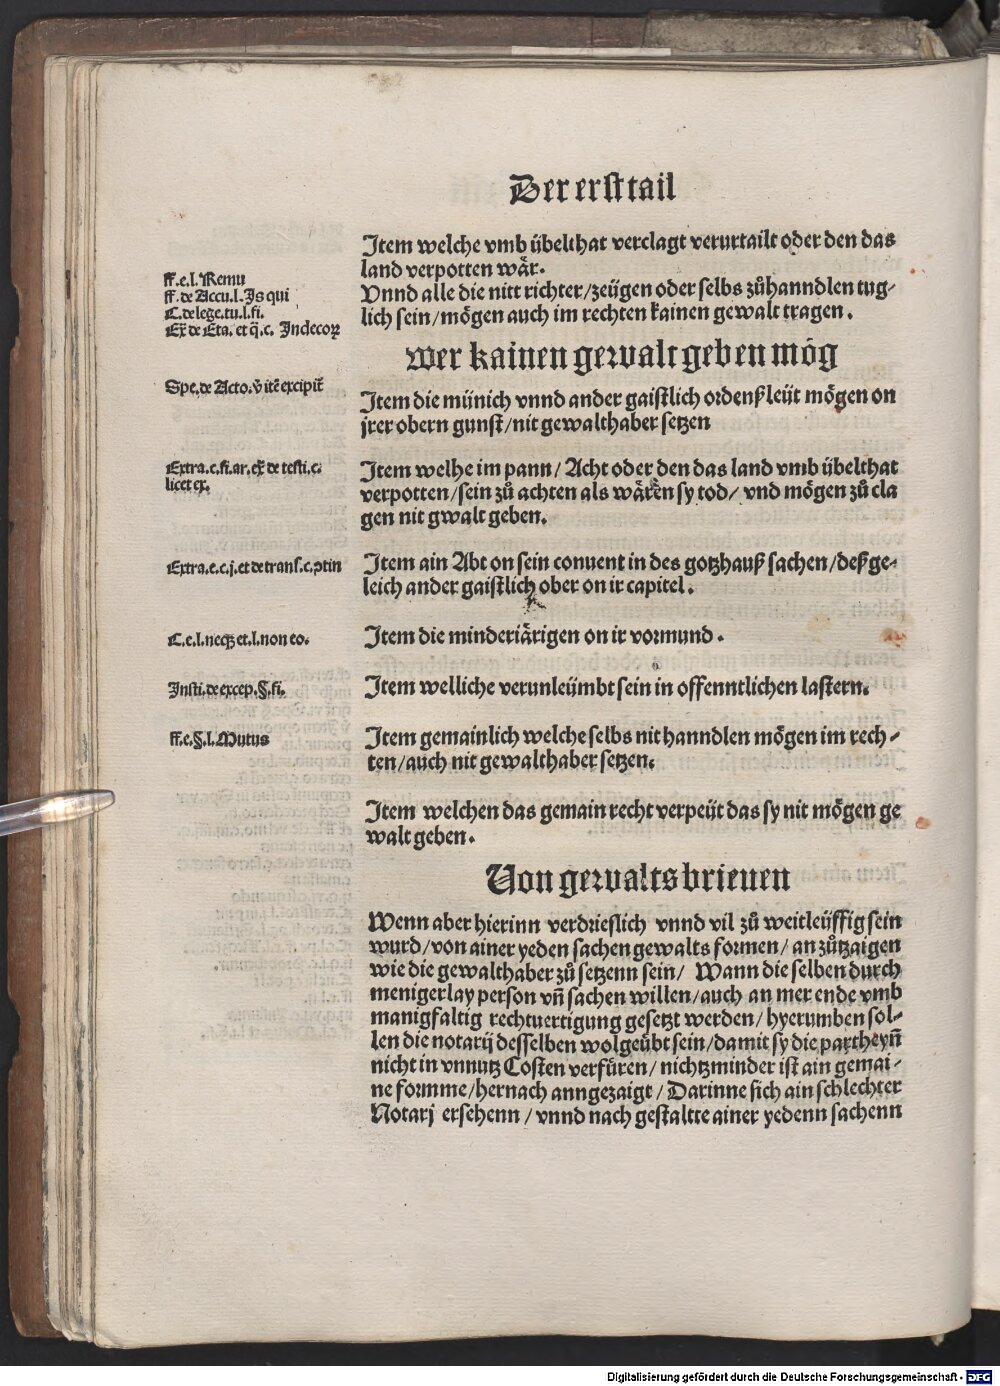 Der erst tail
Item welche vmb übelthat verclagt verurtailt oder den das
land verpotten wär.
ff.e.l. Remu
ff. de Accu.l. Is qui
C. de lege.tu.l.fi.
Ex̄ de Eta. et q̄.c. Indecoꝝ
Vnnd alle die nitt richter/zeügen oder selbs zůhanndlen tug-
lich sein/mögen auch im rechten kainen gewalt tragen.
Wer kainen gewalt geben mög
Spe. de Acto. v̄ itē excipit̄
Item die münich vnnd ander gaistlich ordenß leüt mögen on
jrer obern gunst/nit gewalthaber setzen
Extra.e.fi.ar.ex̄ de testi.c.
licet ex.
Item welhe im pann/ Acht oder den das land vmb übelthat
verpotten/sein zů achten als wären sy tod/ vnd mögen zů cla
gen nit gwalt geben.
Extra.e.c.j.et de trans.c.ꝯtin
Item ain Abt on sein conuent in des gotzhauß sachen/deßge-
leich ander gaistlich ober on ir capitel.
C.e.l.neqꝫ et.l.non eo.
Item die minderiärigen on ir vormund.
Insti.de excep.§.fi.
Item welliche verunleümbt sein in offenntlichen lastern.
ff.e.§.l. Mutus
Item gemainlich welche selbs nit hanndlen mögen im rech-
ten/auch nit gewalthaber setzen.
Item welchen das gemain recht verpeüt das sy nit mögen ge
walt geben.
Von gewaltsbrieuen
Wenn aber hierinn verdrieslich vnnd vil zů weitleüffig sein
wurd/von ainer yeden sachen gewalts formen/an zůtzaigen
wie die gewalthaber zů setzenn sein/ Wann die selben durch
menigerlay person vn̄ sachen willen/auch an mer ende vmb
manigfaltig rechtuertigung gesetzt werden/hyerumben sol-
len die notarij desselben wolgeübt sein/damit sy die partheyn̄
nicht in vnnutz Costen verfüren/ nichtzminder ist ain gemai-
ne formme/hernach anngezaigt/ Darinne sich ain schlechter
Notarj ersehenn/vnnd nach gestaltte ainer yedenn sachenn
Digitalisierung gefördert durch die Deutsche Forschungsgemeinschaft - DFG